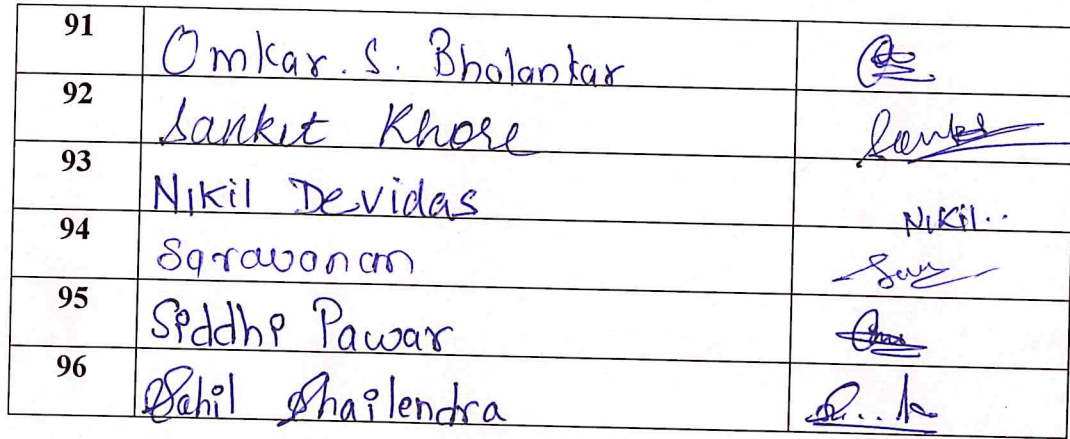 91 Omkar. S. Bholankar
92 Sankit Khore
93 Nikil Devidas Nikil..
94 Saravanan
95 Siddhi Pawar
96 Sahil Shailendra